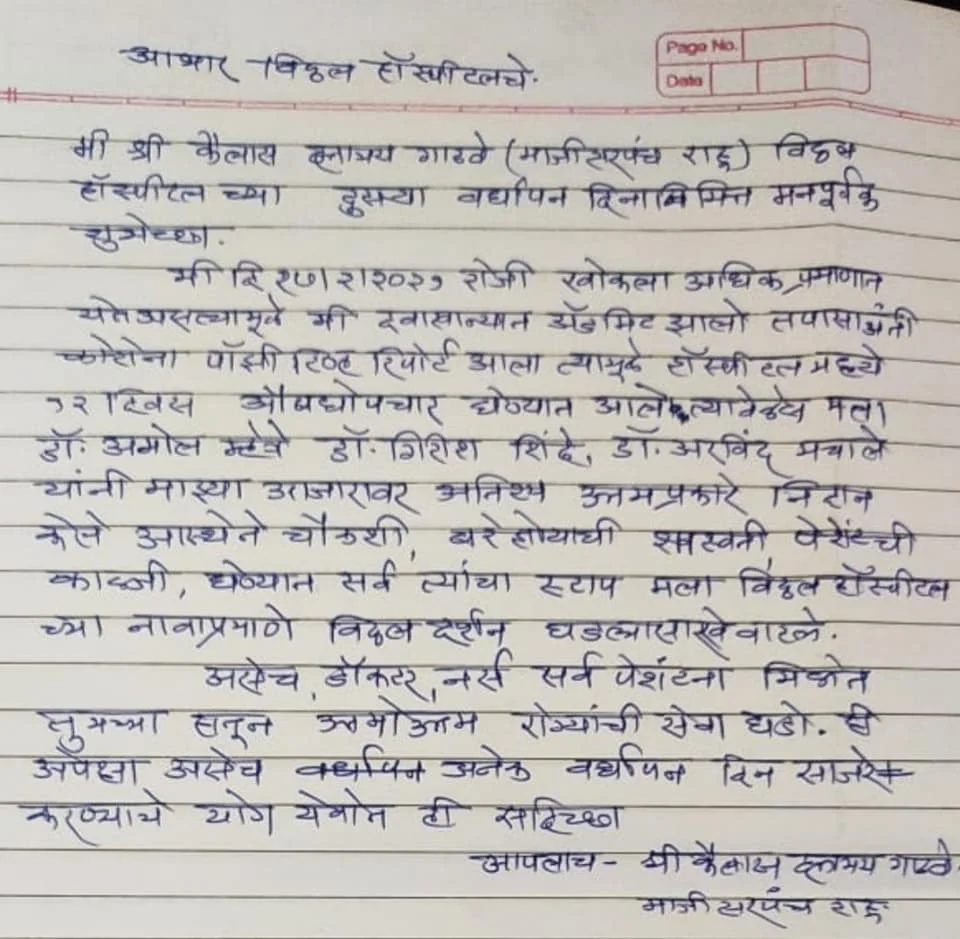 आभार विठ्ठल हॉस्पीटलचे.
Page No.
Date
मी श्री कैलास दत्तात्रय गाढवे (माजी सरपंच राहू) विठ्ठल
हॉस्पीटल च्या दुसऱ्या वर्धापन दिनानिमित्त मनपूर्वक
शुभेच्छा.
मी दि १७/२/२०२१ रोजी खोकला अधिक प्रमाणात
येत असल्यामूळे मी दवाखान्यात अ‍ॅडमिट झालो तपासाअंती
कोरोना पॉझीटिव्ह रिपोर्ट आला त्यामुळे हॉस्पीटल मध्ये
१२ दिवस औषधोपचार घेण्यात आले त्यावेळेस मला
डॉ. अमोल म्हेत्रे डॉ. गिरीश शिंदे, डॉ. अरविंद मचाले
यांनी माझ्या आजारावर अतिशय उत्तमप्रकारे निदान
केले आस्थेने चौकशी, बरे होयाची शाश्वती, पेशंटची
काळजी, घेण्यात सर्व त्यांचा स्टाप मला विठ्ठल हॉस्पीटल
च्या नावाप्रमाणे विठ्ठल दर्शन घडल्यासारखे वाटले.
असेच, डॉक्टर, नर्स सर्व पेशंटना मिळोत
तुमच्या हातून उत्तमोत्तम रोग्यांची सेवा घडो. ही
अपेक्षा असेच वर्धापन अनेक वर्धापन दिन साजरे
करण्याचे योग येवोत ही सदिच्छा
आपलाच - श्री कैलास दत्तात्रय गाढवे.
माजी सरपंच राहू